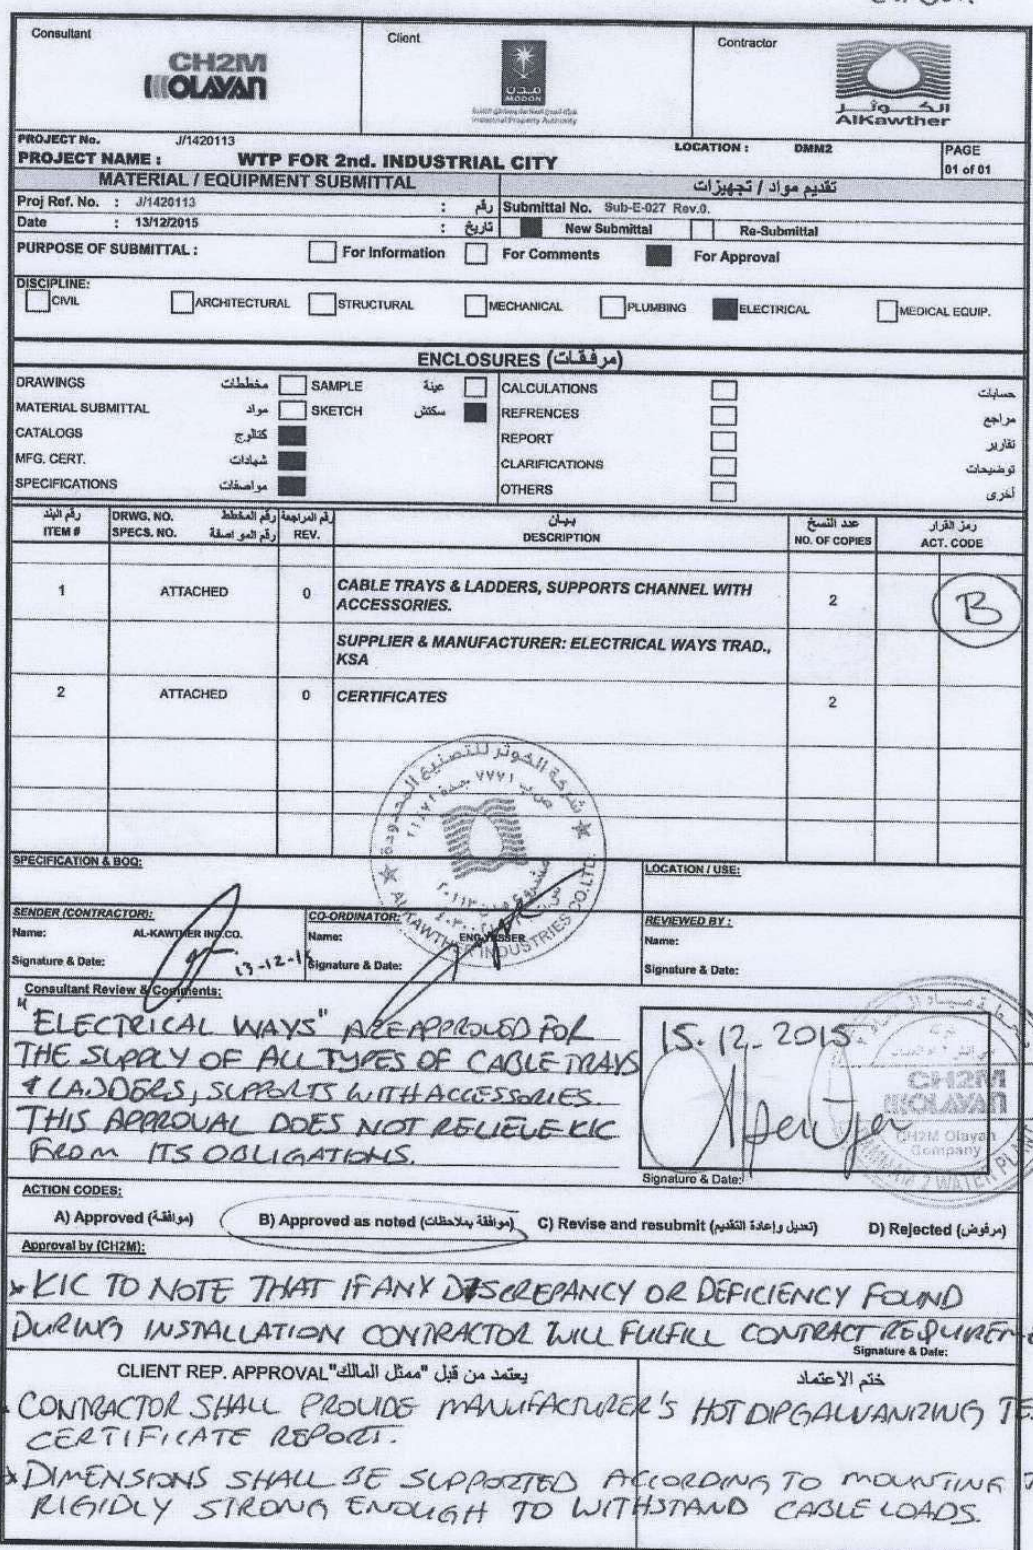 Consultant
Client
Contractor
CH2M
OLAYAN
مدن
MODON
الكوثر
AlKawther
PROJECT No. J/1420113
LOCATION : DMM2
PAGE
PROJECT NAME : WTP FOR 2nd. INDUSTRIAL CITY
01 of 01
MATERIAL / EQUIPMENT SUBMITTAL
تقديم مواد / تجهيزات
Proj Ref. No. : J/1420113 : رقم
Submittal No. Sub-E-027 Rev.0.
Date : 13/12/2015 : تاريخ
New Submittal Re-Submittal
PURPOSE OF SUBMITTAL : For Information For Comments For Approval
DISCIPLINE:
CIVIL ARCHITECTURAL STRUCTURAL MECHANICAL PLUMBING ELECTRICAL MEDICAL EQUIP.
ENCLOSURES (مرفقات)
DRAWINGS مخططات SAMPLE عينة CALCULATIONS حسابات
MATERIAL SUBMITTAL مواد SKETCH سكتش REFRENCES مراجع
CATALOGS كتالوج REPORT تقارير
MFG. CERT. شهادات CLARIFICATIONS توضيحات
SPECIFICATIONS مواصفات OTHERS أخرى
رقم البند DRWG. NO. رقم المخطط رقم المراجعة بيان عدد النسخ رمز القرار
ITEM # SPECS. NO. رقم المواصفة REV. DESCRIPTION NO. OF COPIES ACT. CODE
1 ATTACHED 0 CABLE TRAYS & LADDERS, SUPPORTS CHANNEL WITH ACCESSORIES. 2 B
SUPPLIER & MANUFACTURER: ELECTRICAL WAYS TRAD., KSA
2 ATTACHED 0 CERTIFICATES 2
شركة الكوثر للتصنيع المحدودة
ص ب ٧٧٧١ جدة
ALKAWTHER INDUSTRIES CO.LTD.
SPECIFICATION & BOQ:
LOCATION / USE:
SENDER (CONTRACTOR):
CO-ORDINATOR:
REVIEWED BY :
Name: AL-KAWTHER IND.CO.
Name: ENG.YESSER
Name:
Signature & Date: 13-12-15
Signature & Date:
Signature & Date:
Consultant Review & Comments:
"ELECTRICAL WAYS" ARE APPROVED FOR
THE SUPPLY OF ALL TYPES OF CABLE TRAYS
& LADDERS, SUPPORTS WITH ACCESSORIES.
THIS APPROVAL DOES NOT RELIEVE KIC
FROM ITS OBLIGATIONS.
15.12.2015
CH2M
OLAYAN
CH2M Olayan
Company
Signature & Date:
ACTION CODES:
A) Approved (موافقة) B) Approved as noted (موافقة بملاحظات) C) Revise and resubmit (تعديل وإعادة التقديم) D) Rejected (مرفوض)
Approval by (CH2M):
* KIC TO NOTE THAT IF ANY DISCREPANCY OR DEFICIENCY FOUND
DURING INSTALLATION CONTRACTOR WILL FULFILL CONTRACT REQUIREME
Signature & Date:
CLIENT REP. APPROVAL"يعتمد من قبل "ممثل المالك
ختم الاعتماد
CONTRACTOR SHALL PROVIDE MANUFACTURER'S HOT DIP GALVANIZING TES
CERTIFICATE REPORT.
* DIMENSIONS SHALL BE SUPPORTED ACCORDING TO MOUNTING
RIGIDLY STRONG ENOUGH TO WITHSTAND CABLE LOADS.